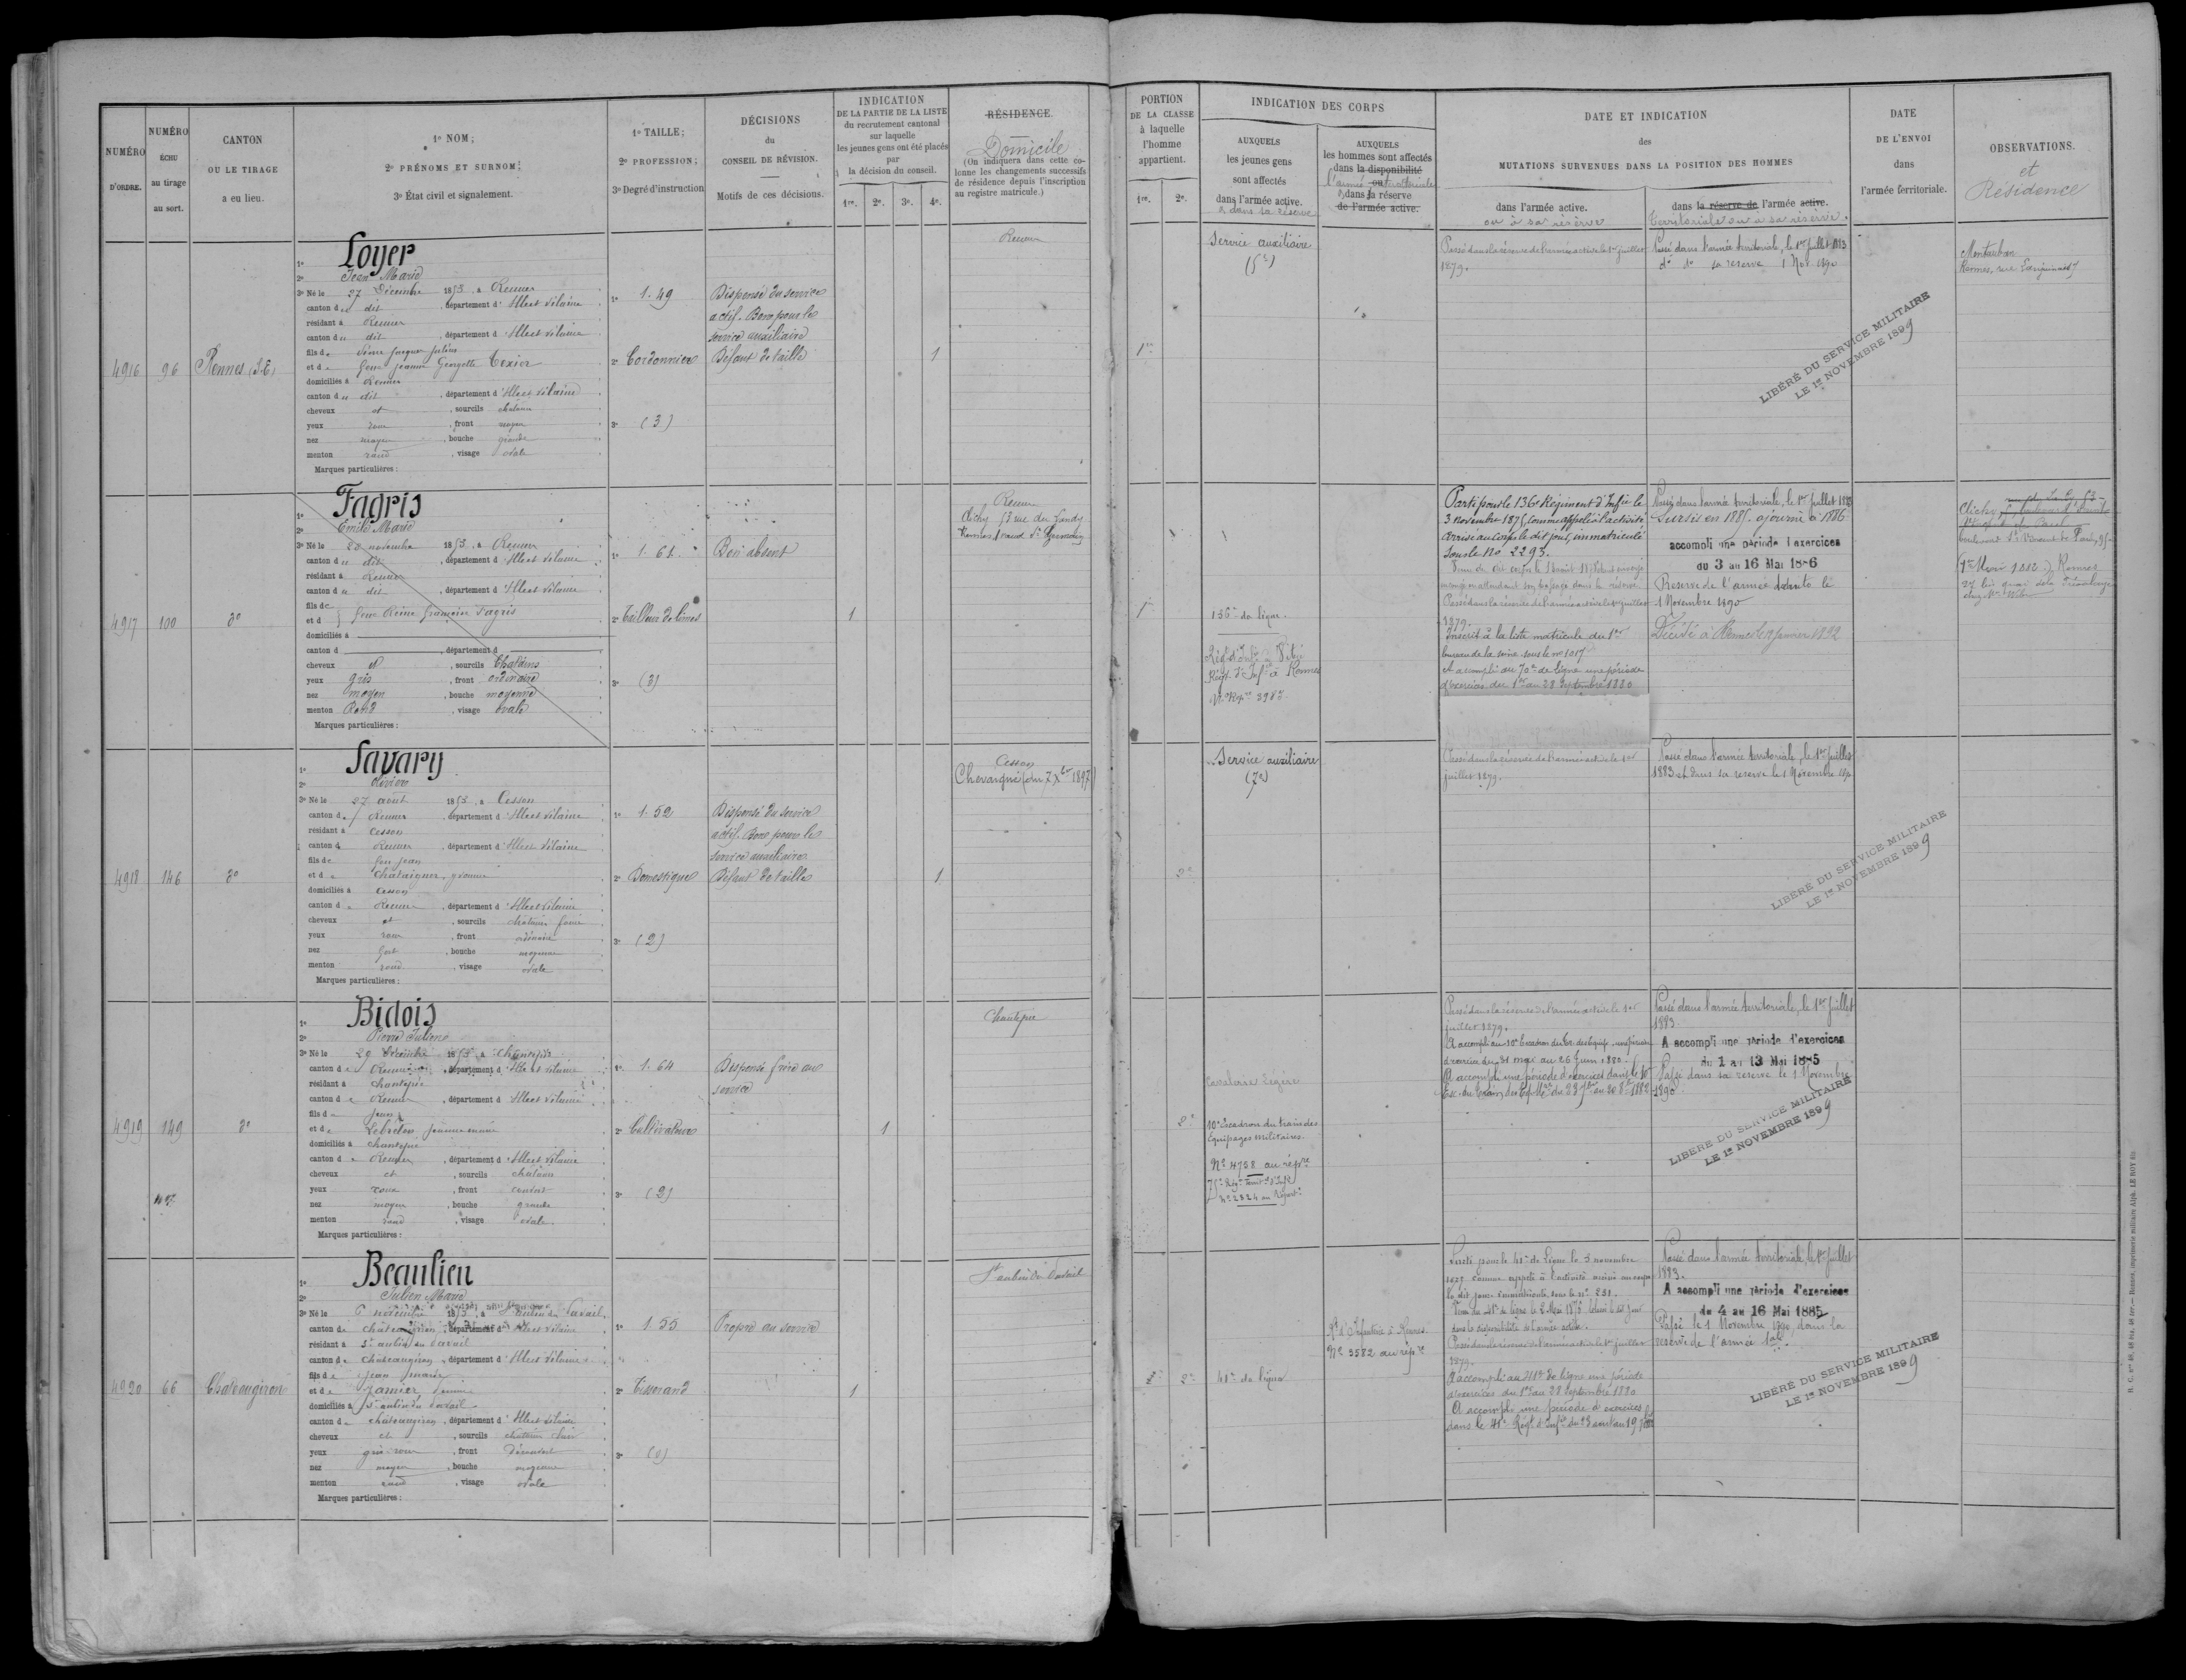 NUMÉRO
D'ORDRE.
NUMÉRO
ÉCHU
au tirage
au sort.
CANTON
OU LE TIRAGE
a eu lieu.
1º NOM;
2º PRÉNOMS ET SURNOM;
3º État civil et signalement.
1º TAILLE;
2º PROFESSION;
3º Degré d'instruction
DÉCISIONS
du
CONSEIL DE RÉVISION.
Motifs de ces décisions.
INDICATION
DE LA PARTIE DE LA LISTE
du recrutement cantonal
sur laquelle
les jeunes gens ont été placés
par
la décision du conseil.
1re. 2e. 3e. 4e.
RÉSIDENCE.
Domicile
(On indiquera dans cette co-
lonne les changements successifs
de résidence depuis l'inscription
au registre matricule.)
PORTION
DE LA CLASSE
à laquelle
l'homme
appartient.
1re. 2e.
INDICATION DES CORPS
AUXQUELS
les jeunes gens
sont affectés
dans l'armée active.
& dans sa réserve
AUXQUELS
les hommes sont affectés
dans la disponibilité
l'armée ou territoriale
dans la réserve
de l'armée active.
DATE ET INDICATION
des
MUTATIONS SURVENUES DANS LA POSITION DES HOMMES
dans l'armée active.
ou à sa réserve
dans la réserve de l'armée active.
territoriale ou à sa réserve.
DATE
DE L'ENVOI
dans
l'armée territoriale.
OBSERVATIONS.
et
Résidence
4916
96
Rennes (S.E)
1º Loyer
2º Jean Marie
3º Né le 27 Décembre 1853, à Rennes
canton du dit, département d'Ille et Vilaine
résidant à Rennes
canton du dit, département d'Ille et Vilaine
fils de
et de feue Jeanne Georgette Texier
domiciliés à Rennes
canton du dit, département d'Ille et Vilaine
cheveux et, sourcils châtains
yeux roux, front moyen
nez moyen, bouche grande
menton rond, visage ovale
Marques particulières :
1º 1.49
2º Cordonnier
3º (3)
Dispensé du service
actif. Bon pour le
service auxiliaire
Défaut de taille
1
Rennes
1re
Service auxiliaire
(5e)
Passé dans la réserve de l'armée active le 1er juillet
1879.
Passé dans l'armée territoriale, le 1er juillet 1883
dº dº sa reserve 1 Nov. 1890
LIBÉRÉ DU SERVICE MILITAIRE
LE 1er NOVEMBRE 1899
Montauban
Rennes, rue
4917
100
dº
1º Fagris
2º Emile Marie
3º Né le 28 novembre 1853, à Rennes
canton du dit, département d'Ille et Vilaine
résidant à Rennes
canton du dit, département d'Ille et Vilaine
fils de
et d feue Reine Françoise Fagris
domiciliés à
canton d, département d
cheveux et, sourcils Châtains
yeux gris, front ordinaire
nez moyen, bouche moyenne
menton Rond, visage ovale
Marques particulières :
1º 1.66
2º Tailleur de limes
3º (3)
Bon absent
1
Rennes
Clichy 53 rue du Landy
Rennes, 1 canal St Germain
1re
136e de ligne.
Régt d'Infie à Vitré
Régt d'Infie à Rennes
Nº Répre 3987
Parti pour le 136e Régiment d'Infie le
3 novembre 1875, comme appelé à l'activité
arrivé au corps le dit jour, immatriculé
sous le Nº 2293.
Passé dans la réserve de l'armée active le 1er juillet
1879.
Inscrit à la liste matricule du 1er
bureau de la Seine sous le nº 1017
A accompli au 70e de ligne une période
d'exercices du 1er au 28 Septembre 1880
Passé dans l'armée territoriale, le 1er juillet 1883
Sursis en 1885. ajourné à 1886
accompli une période d'exercices
du 3 au 16 Mai 1886
Reserve de l'armée
1 Novembre 1890
Décédé à Rennes le janvier 1892
Clichy
Rennes
4918
146
dº
1º Savary
2º
3º Né le 27 août 1853, à Cesson
canton de Rennes, département d'Ille et Vilaine
résidant à Cesson
canton de Rennes, département d'Ille et Vilaine
fils de feu Jean
et de Chataignier, Yvonne
domiciliés à Cesson
canton de Rennes, département d'Ille et Vilaine
cheveux et, sourcils châtains foncé
yeux roux, front ordinaire
nez fort, bouche moyenne
menton rond, visage ovale
Marques particulières :
1º 1.52
2º Domestique
3º (2)
Dispensé du service
actif. Bon pour le
service auxiliaire
Défaut de taille
1
Cesson
Chevaigné (don 7 Xbre 1897)
2e
Service auxiliaire
(7e)
Passé dans la réserve de l'armée active le 1er
juillet 1879.
Passé dans l'armée territoriale, le 1er juillet
1883 et dans sa reserve le 1 Novembre 1890
LIBÉRÉ DU SERVICE MILITAIRE
LE 1er NOVEMBRE 1899
4919
149
dº
1º Bidois
2º Pierre Julien
3º Né le 29 Décembre 1853, à Chantepie
canton de Rennes, département d'Ille et Vilaine
résidant à Chantepie
canton de Rennes, département d'Ille et Vilaine
fils de Jean
et de Lebreton Jeanne marie
domiciliés à Chantepie
canton de Rennes, département d'Ille et Vilaine
cheveux et, sourcils châtains
yeux roux, front couvert
nez moyen, bouche grande
menton rond, visage ovale
Marques particulières :
1º 1.64
2º Cultivateur
3º (2)
Dispensé frère au
service
1
Chantepie
2e
Cavalerie légère
10e Escadron du train des
Equipages militaires.
Nº 4758 au répre
75e Régt Territ. d'Infie
Nº 2324 au Répert.
Passé dans la réserve de l'armée active le 1er
juillet 1879.
A accompli au 10e Escadron du tr. des Equip. une période
d'exercices du 31 mai au 26 Juin 1880.
A accompli une période d'exercices dans le 10e
Esc. du train des Eq. Mres du 23 7bre au 20 8bre 1882
Passé dans l'armée territoriale, le 1er juillet
1883.
A accompli une période d'exercices
du 1 au 13 Mai 1885
Passé dans sa reserve le 1 Novembre
1890
LIBÉRÉ DU SERVICE MILITAIRE
LE 1er NOVEMBRE 1899
4920
66
Chateaugiron
1º Beaulieu
2º Julien Marie
3º Né le novembre 1853, à St Aubin du Pavail
canton de Châteaugiron, département d'Ille et Vilaine
résidant à St aubin du Pavail
canton de Châteaugiron, département d'Ille et Vilaine
fils de Jean marie
et de Jamier,
domiciliés à St aubin du Pavail
canton de Châteaugiron, département d'Ille et Vilaine
cheveux et, sourcils châtains clair
yeux gris-roux, front découvert
nez moyen, bouche moyenne
menton rond, visage ovale
Marques particulières :
1º 1.55
2º Tisserand
3º (0)
Propre au service
1
St aubin du Pavail
2e
41e de ligne
Rt d'Infanterie à Rennes.
Nº 3582 au répre
Parti pour le 41e de Ligne le 3 novembre
comme appelé à l'activité arrivé au corps
le dit jour. Immatriculé sous le nº 251
dans la disponibilité de l'armée active.
Passé dans la réserve de l'armée active le 1er juillet
1879.
A accompli au 41e de ligne une période
d'exercices du 1er au 28 Septembre 1880
A accompli une période d'exercices
dans le 41e Régt d'Infie du
Passé dans l'armée territoriale, le 1er juillet
1883.
A accompli une période d'exercices
du 4 au 16 Mai 1885
Passé le 1 Novembre 1890, dans la
reserve de l'armée tale.
LIBÉRÉ DU SERVICE MILITAIRE
LE 1er NOVEMBRE 1899